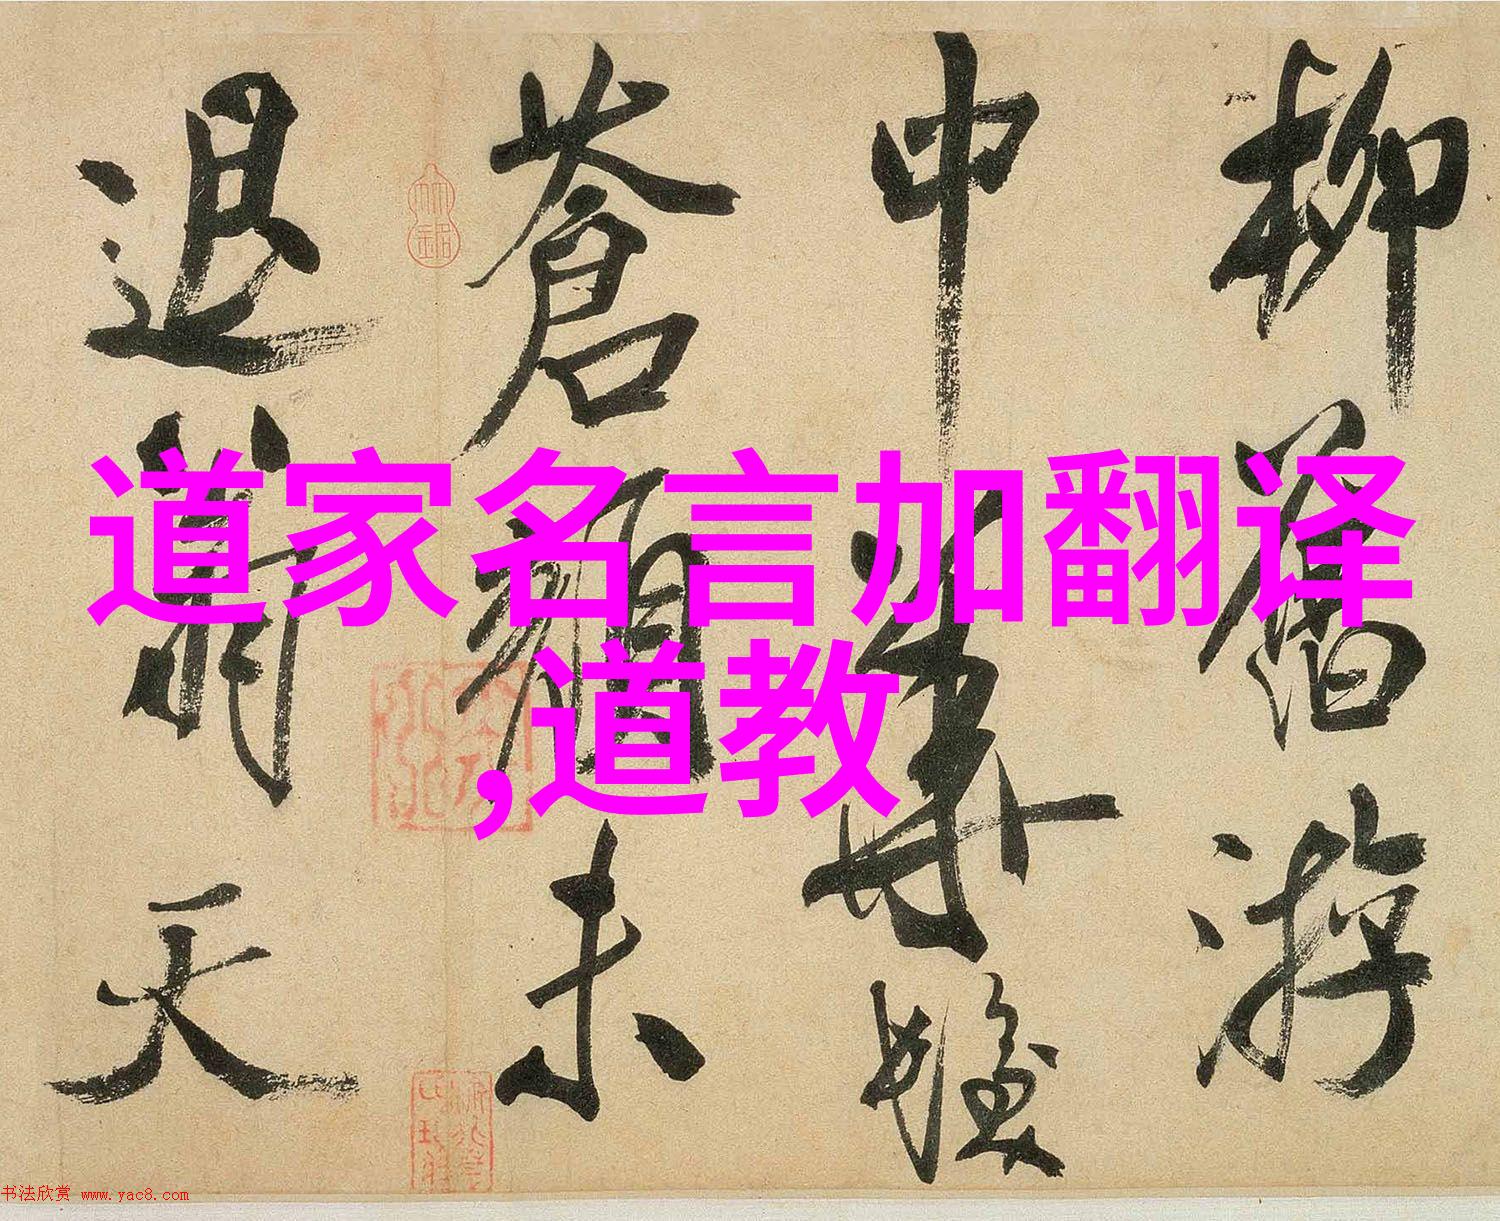 道家名言加翻译
,道教
柳舊游
中華
蒼顏未
退天
书法欣赏 www.yac8.com